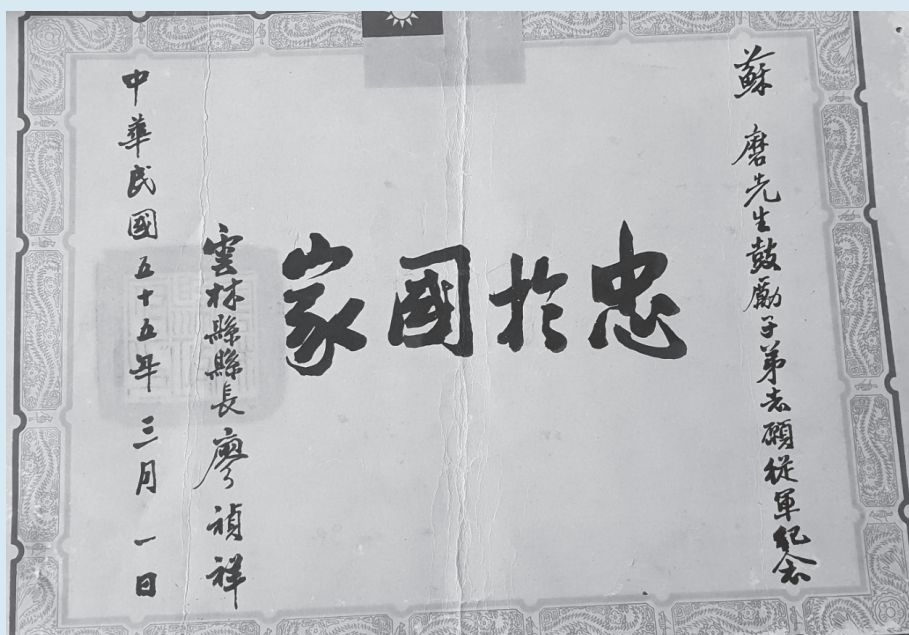 蘇 磨先生鼓勵子弟志願從軍紀念
忠於國家
雲林縣縣長廖禎祥
中華民國五十五年三月一日